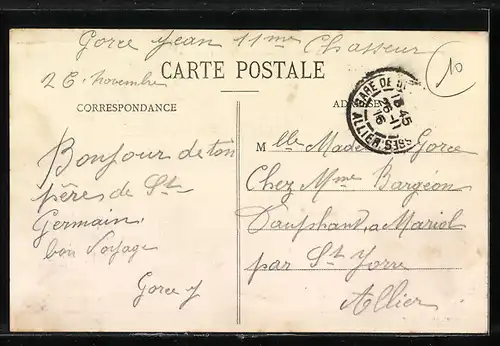 Gorce Jean 11me Chasseur
10
26 Novembre
CARTE POSTALE
CORRESPONDANCE
GARE DE
13 45
26-11
16
ALLIER
Bonjour de ton
père de St
Germain.
bon Voyage
Gorce J
Mlle Gorce
Chez Mme Bargeon
a Mariol
par St Yorre
Allier